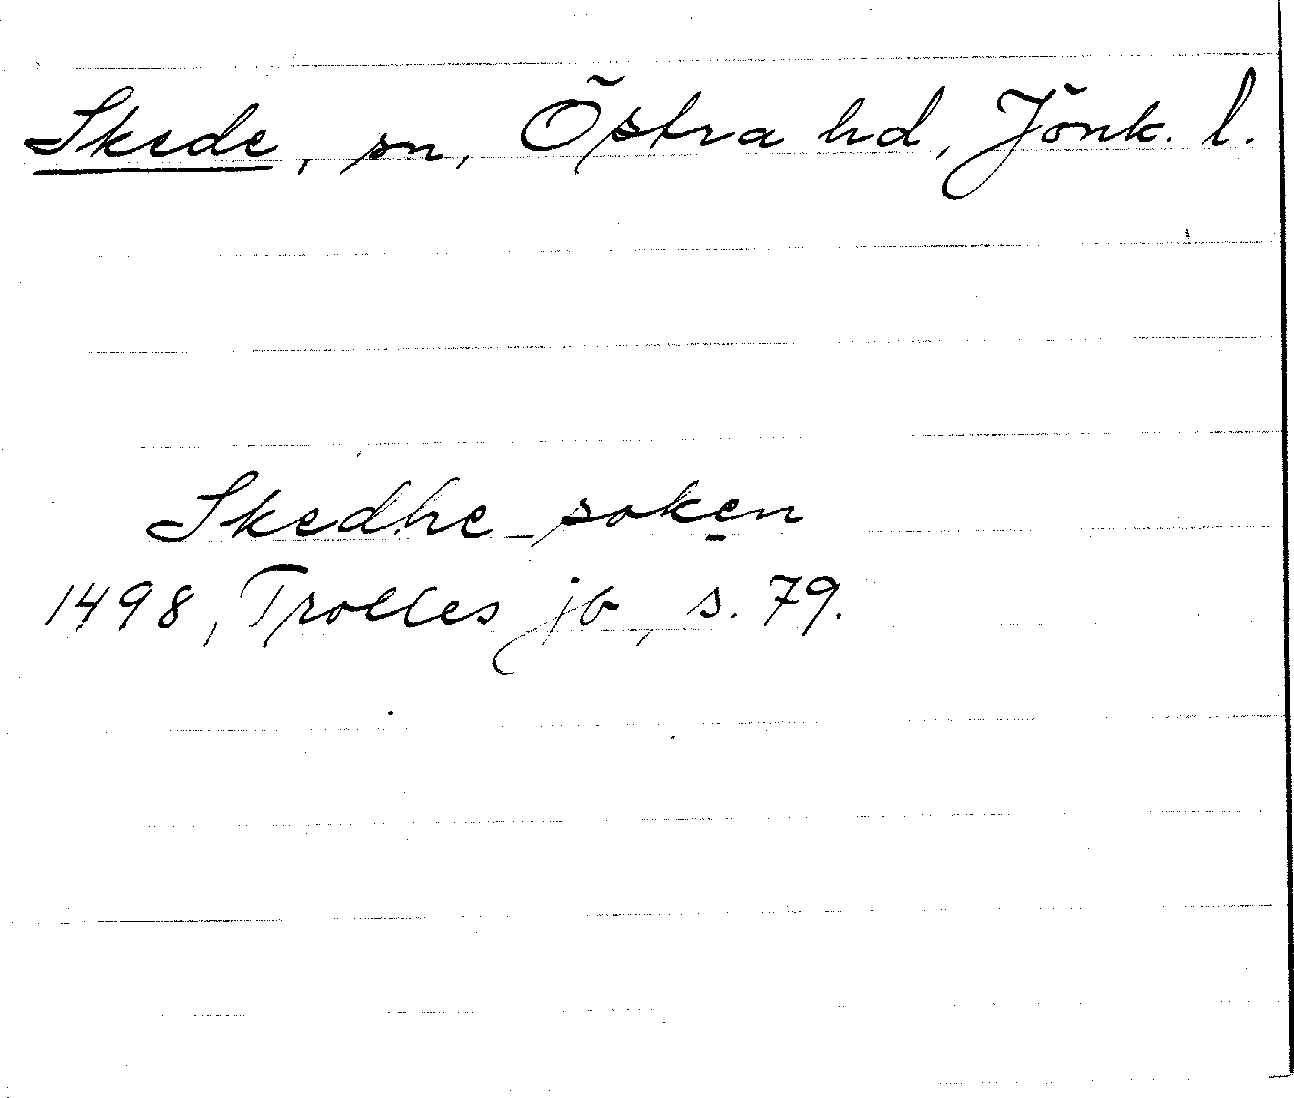 Skede, sn, Östra hd, Jönk. l.
Skedhe soken
1498, Trolles jb, s. 79.